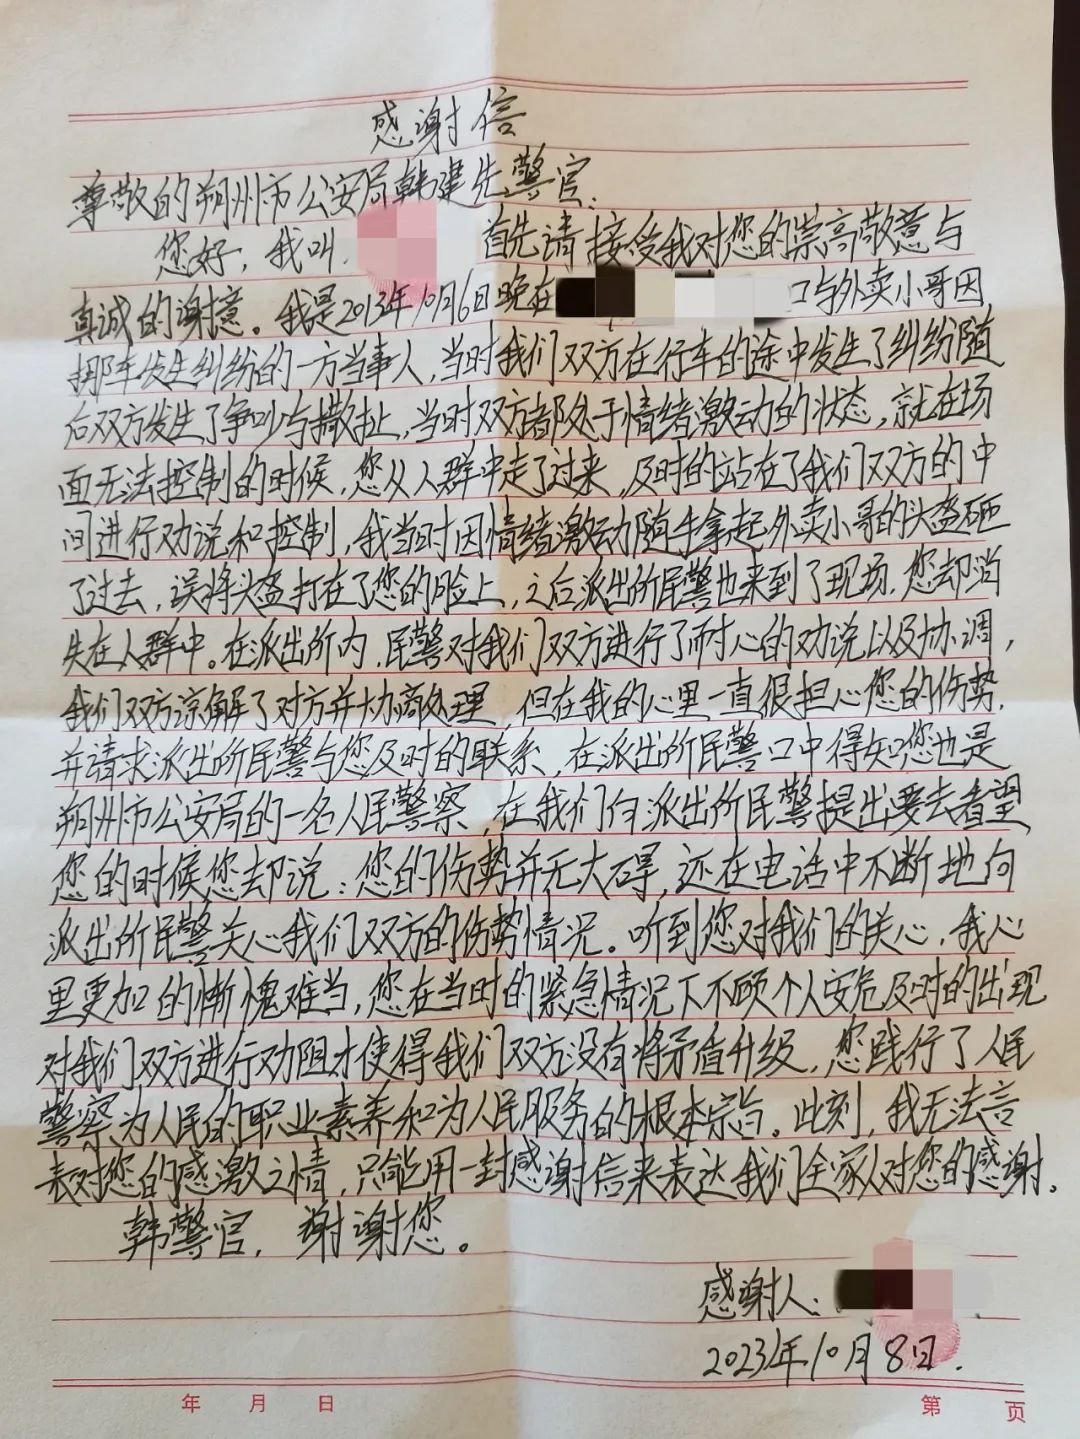 感谢信
尊敬的朔州市公安局韩建先警官:
您好,我叫 首先请接受我对您的崇高敬意与
真诚的谢意。我是2013年10月6日晚在 口与外卖小哥因
挪车发生纠纷的一方当事人,当时我们双方在行车的途中发生了纠纷随
后双方发生了争吵与撕扯,当时双方都处于情绪激动的状态,就在场
面无法控制的时候,您从人群中走了过来,及时的站在了我们双方的中
间进行劝说和控制,我当时因情绪激动随手拿起外卖小哥的头盔砸
了过去,误将头盔打在了您的脸上,之后派出所民警也来到了现场,您却消
失在人群中。在派出所内,民警对我们双方进行了耐心的劝说以及协调,
我们双方谅解了对方并协商处理,但在我的心里一直很担心您的伤势,
并请求派出所民警与您及时的联系,在派出所民警口中得知您也是
朔州市公安局的一名人民警察,在我们向派出所民警提出要去看望
您的时候您却说:您的伤势并无大碍,还在电话中不断地向
派出所民警关心我们双方的伤势情况。听到您对我们的关心,我心
里更加的惭愧难当,您在当时的紧急情况下不顾个人安危及时的出现
对我们双方进行劝阻才使得我们双方没有将矛盾升级,您践行了人民
警察为人民的职业素养和为人民服务的根本宗旨。此刻,我无法言
表对您的感激之情,只能用一封感谢信来表达我们全家人对您的感谢。
韩警官,谢谢您。
感谢人:
2023年10月8日.
年 月 日 第 页